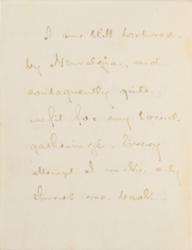 I am still tortured
by Neuralgia, and
consequently quite
unfit for any social
gatherings. Every
attempt I make, only
throws me back.